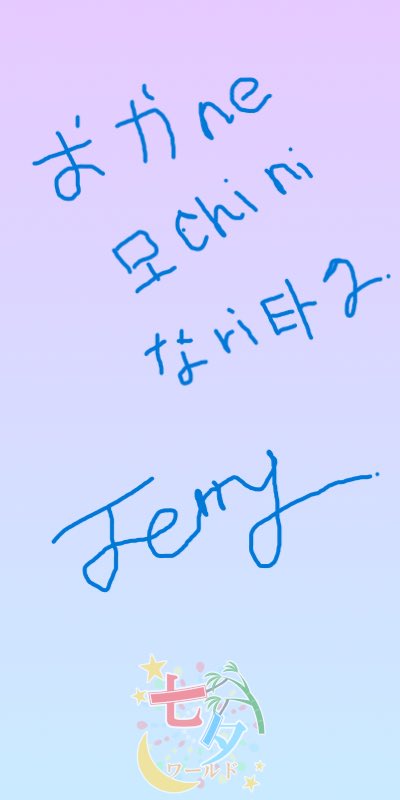 おかne
모chini
なri타2.
Jerry
七夕
ワールド